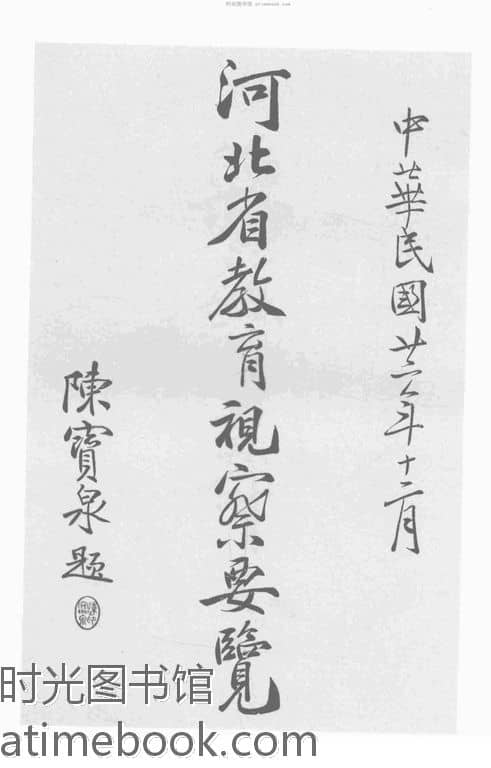 时光图书馆 atimebook.com
中華民國廿二年十二月
河北省教育視察要覽
陳寶泉題
时光图书馆
atimebook.com